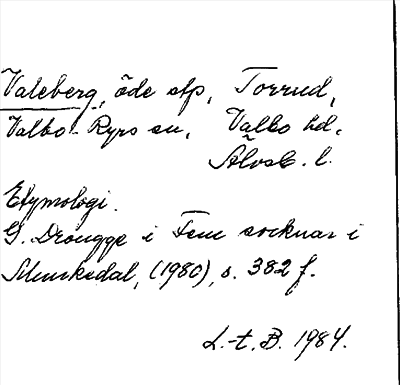 Valeberg, öde stp, Torrud,
Valbo-Ryrs sn, Valbo hd.
Älvsb. l.
Etymologi.
G. Drougge i Fem socknar i
Munkedal, (1980), s. 382 f.
L.-t. B. 1984.